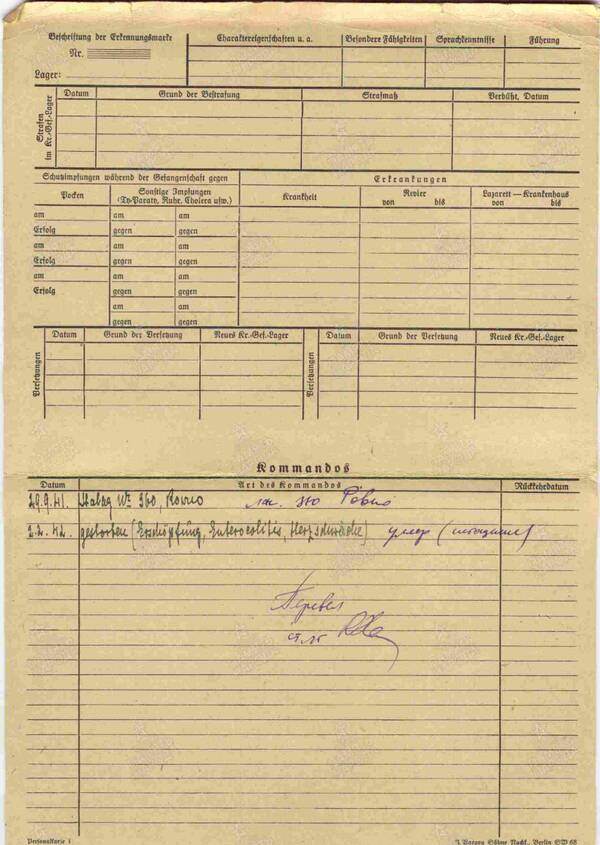 Beschriftung der Erkennungsmarke
Nr.
Lager:
Charaktereigenschaften u. a.
Besondere Fähigkeiten
Sprachkenntnisse
Führung
Strafen im Kr.-Gef.-Lager
Datum
Grund der Bestrafung
Strafmaß
Verbüßt, Datum
Schutzimpfungen während der Gefangenschaft gegen
Erkrankungen
Pocken
Sonstige Impfungen
(Ty-Paraty, Ruhr, Cholera usw.)
Krankheit
Revier
von bis
Lazarett — Krankenhaus
von bis
am am am
Erfolg gegen gegen
am am am
Erfolg gegen gegen
am am am
Erfolg gegen gegen
am am
gegen gegen
Versetzungen
Datum
Grund der Versetzung
Neues Kr.-Gef.-Lager
Versetzungen
Datum
Grund der Versetzung
Neues Kr.-Gef.-Lager
Kommandos
Datum
Art des Kommandos
Rückkehrdatum
29.9.41. Stalag № 360, Rowno 360 Ровно
2.2.42. gestorben (Erschöpfung, Enterocolitis, Herzschwäche) умер (истощение)
Перевел
Personalkarte I
Berlin SW 68